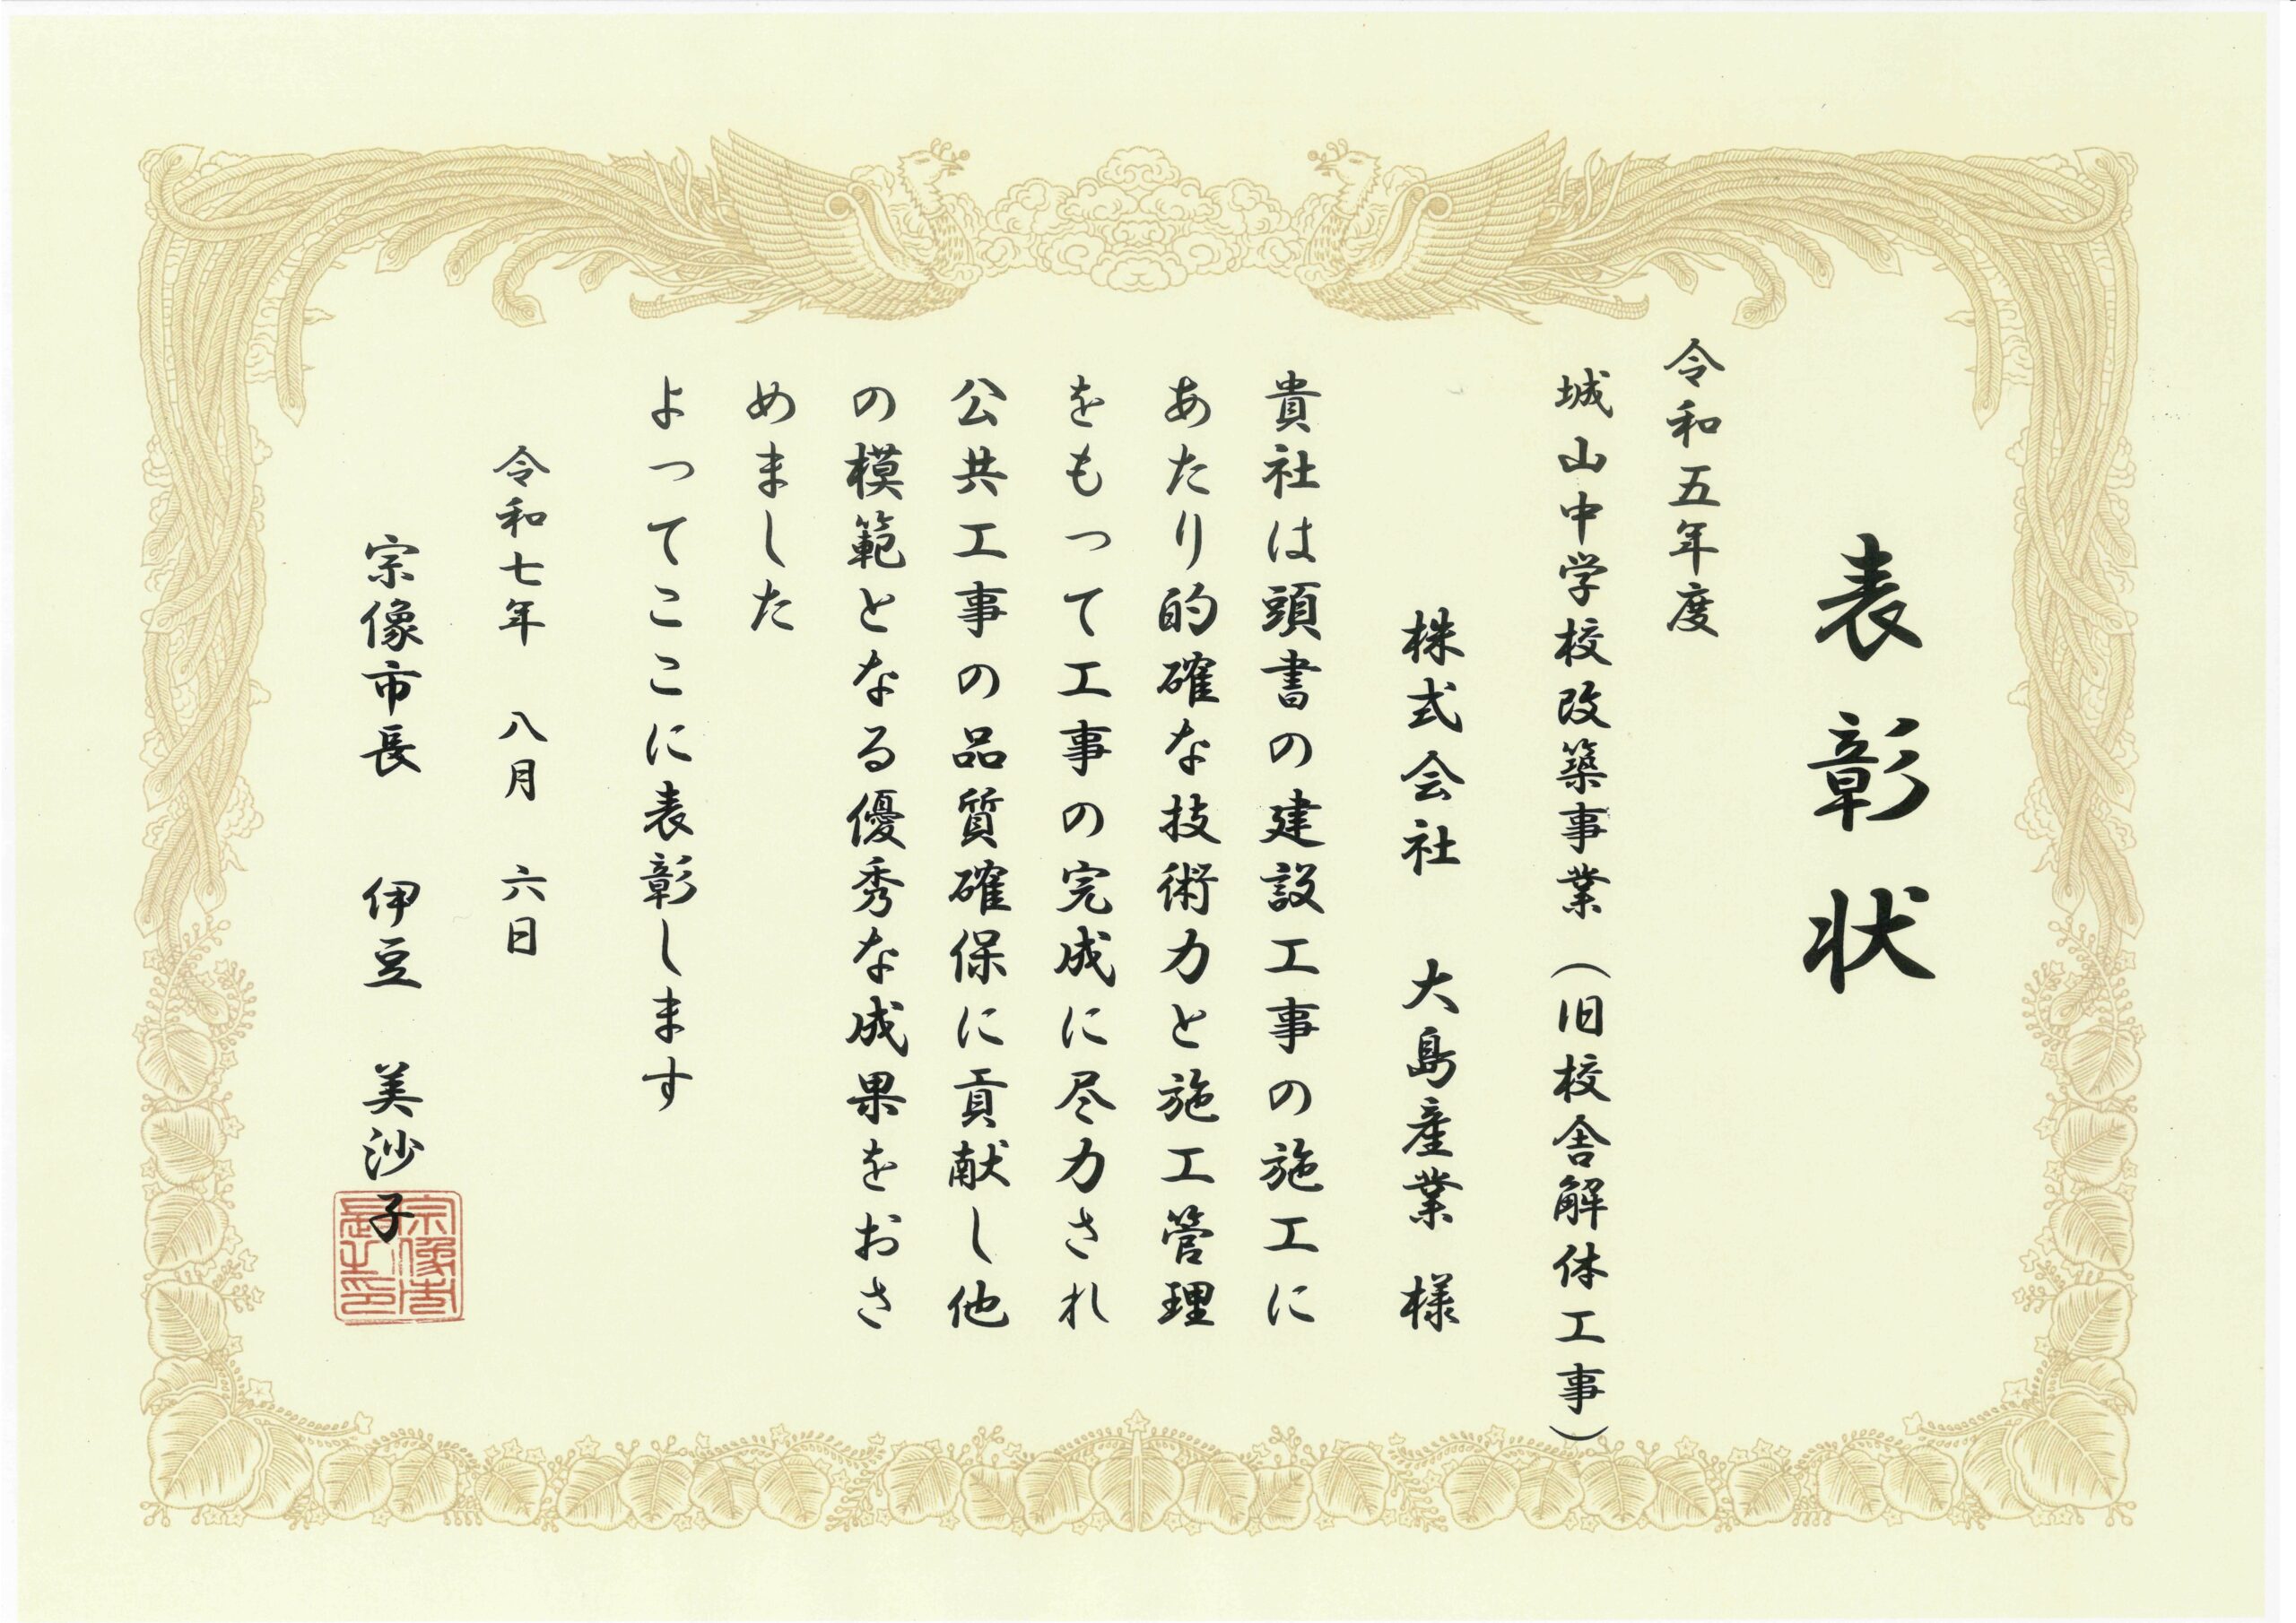 表彰状
令和五年度
城山中学校改築事業（旧校舎解体工事）
株式会社 大島産業 様
貴社は頭書の建設工事の施工に
あたり的確な技術力と施工管理
をもって工事の完成に尽力され
公共工事の品質確保に貢献し他
の模範となる優秀な成果をおさ
めました
よってここに表彰します
令和七年 八月 六日
宗像市長 伊豆 美沙子
宗像市
長之印